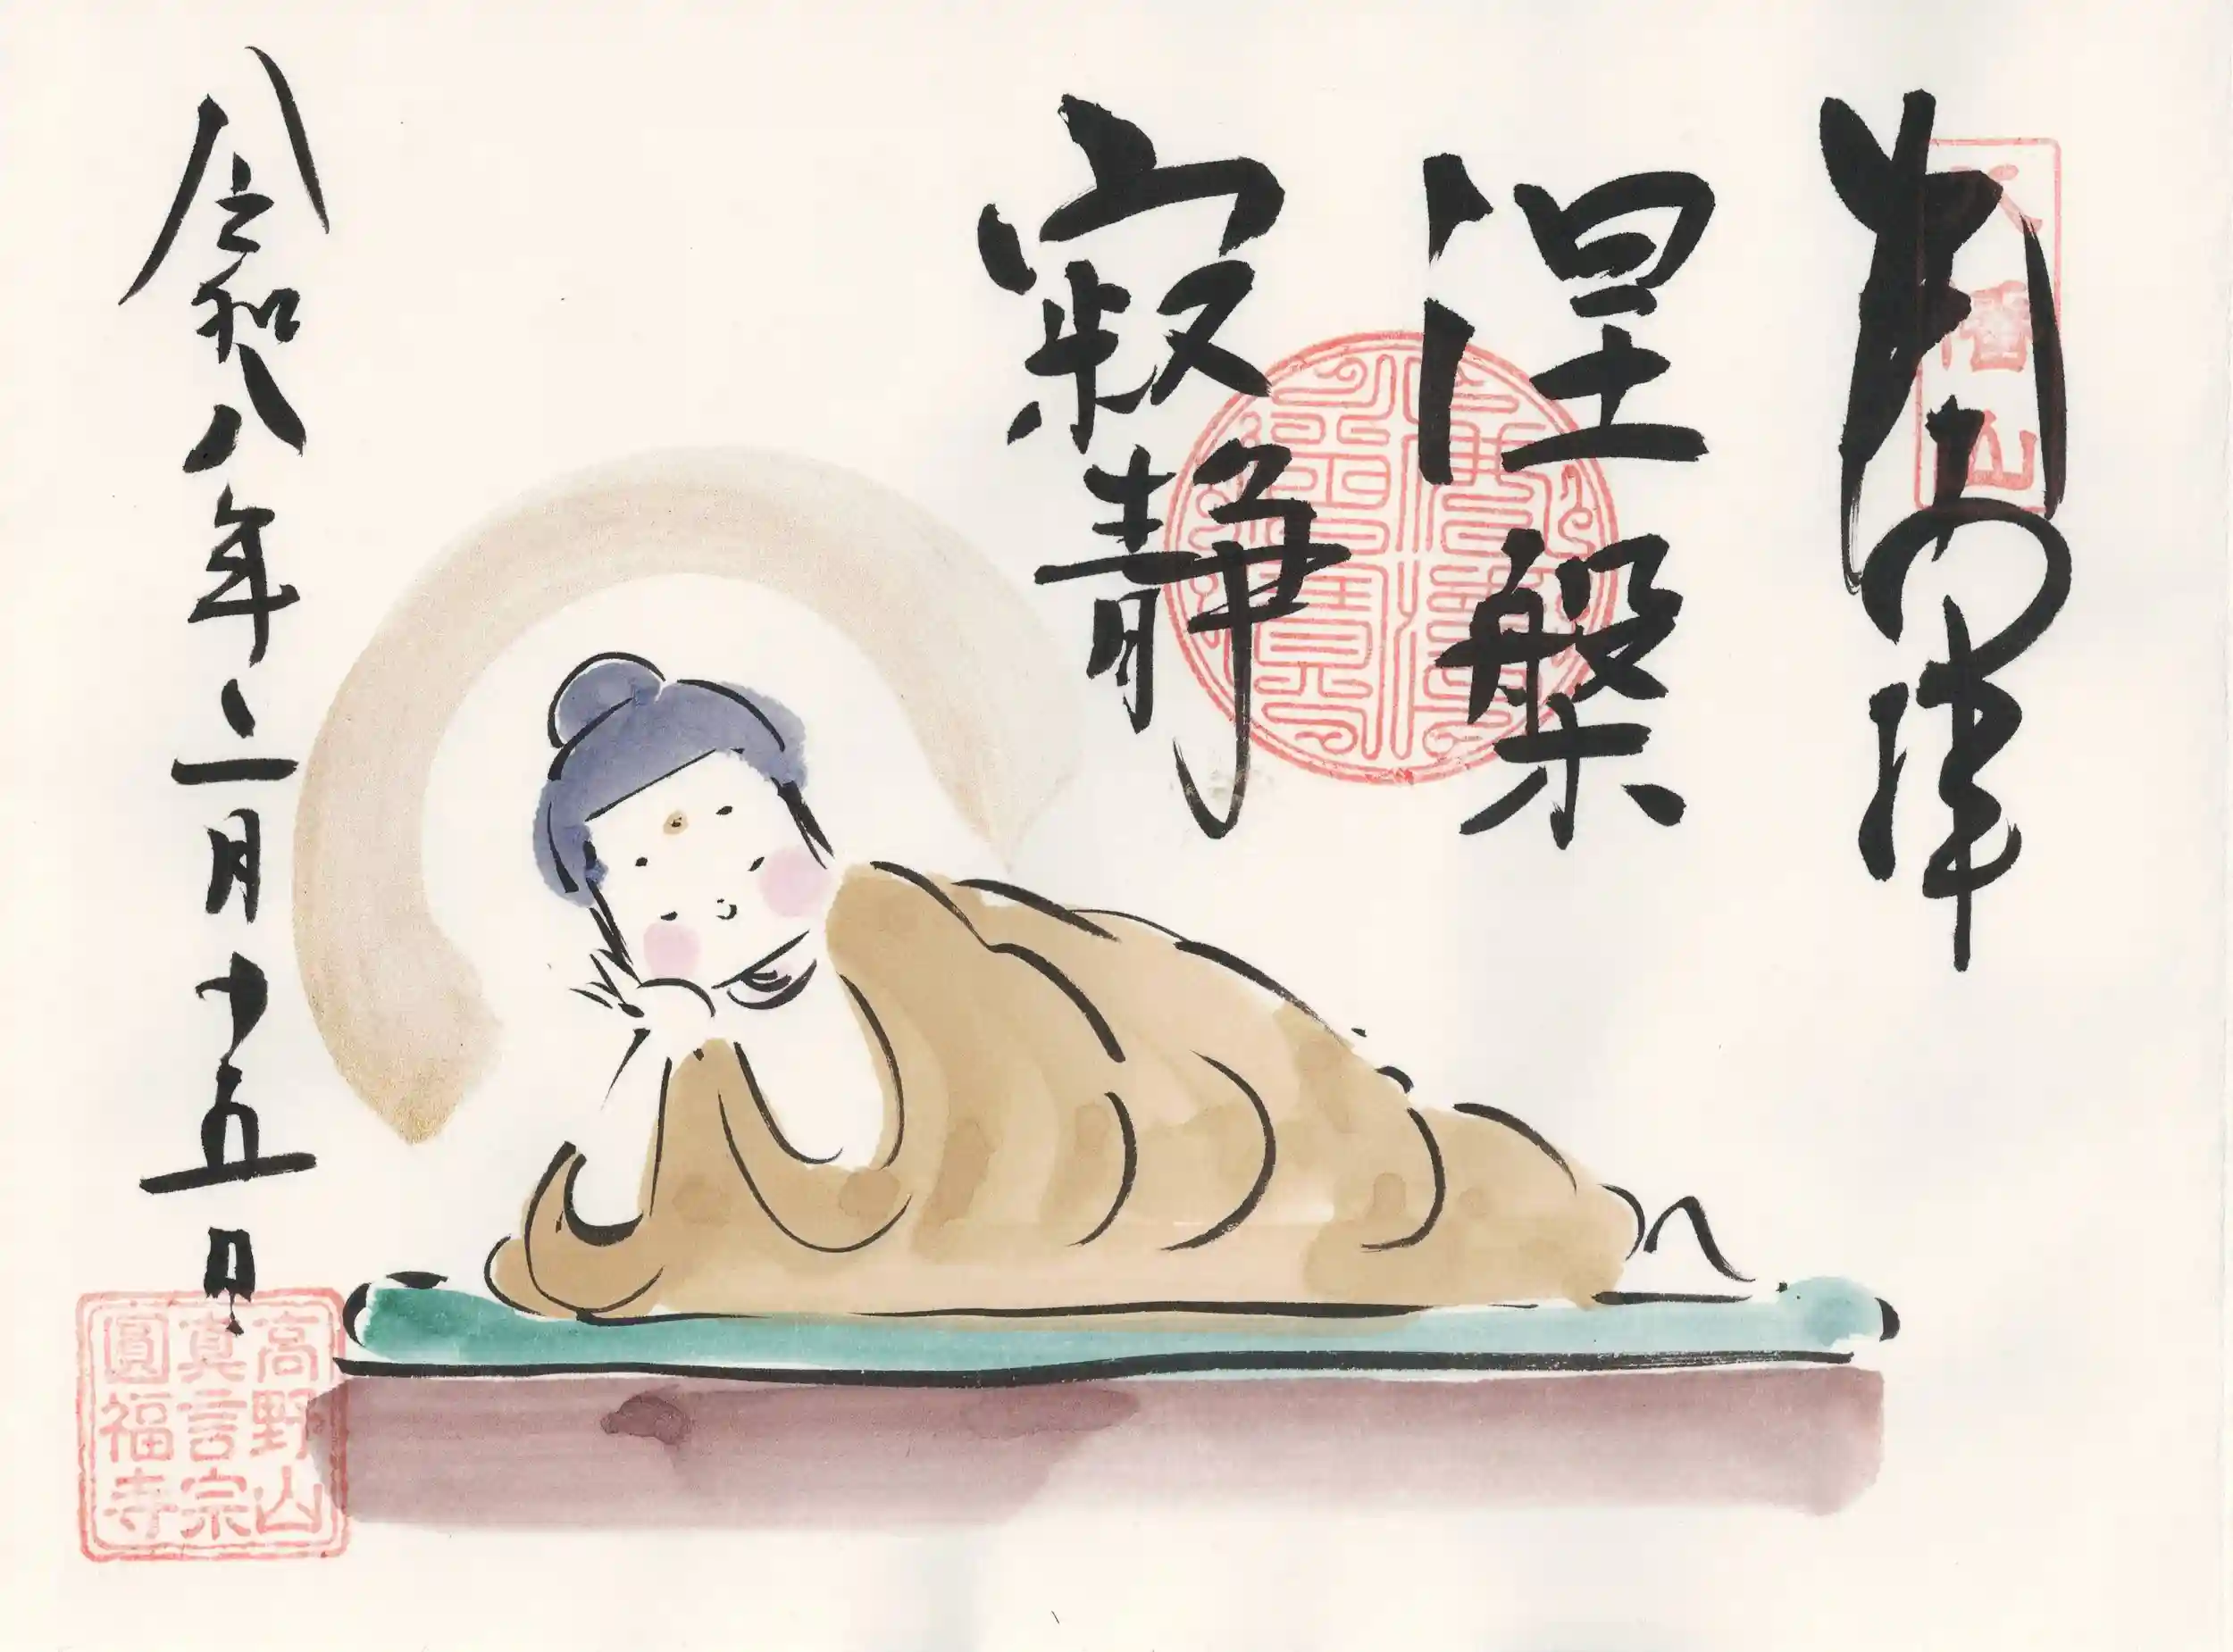 奉拝
涅槃
寂静
令和八年二月十五日
高野山
真言宗
圓福寺